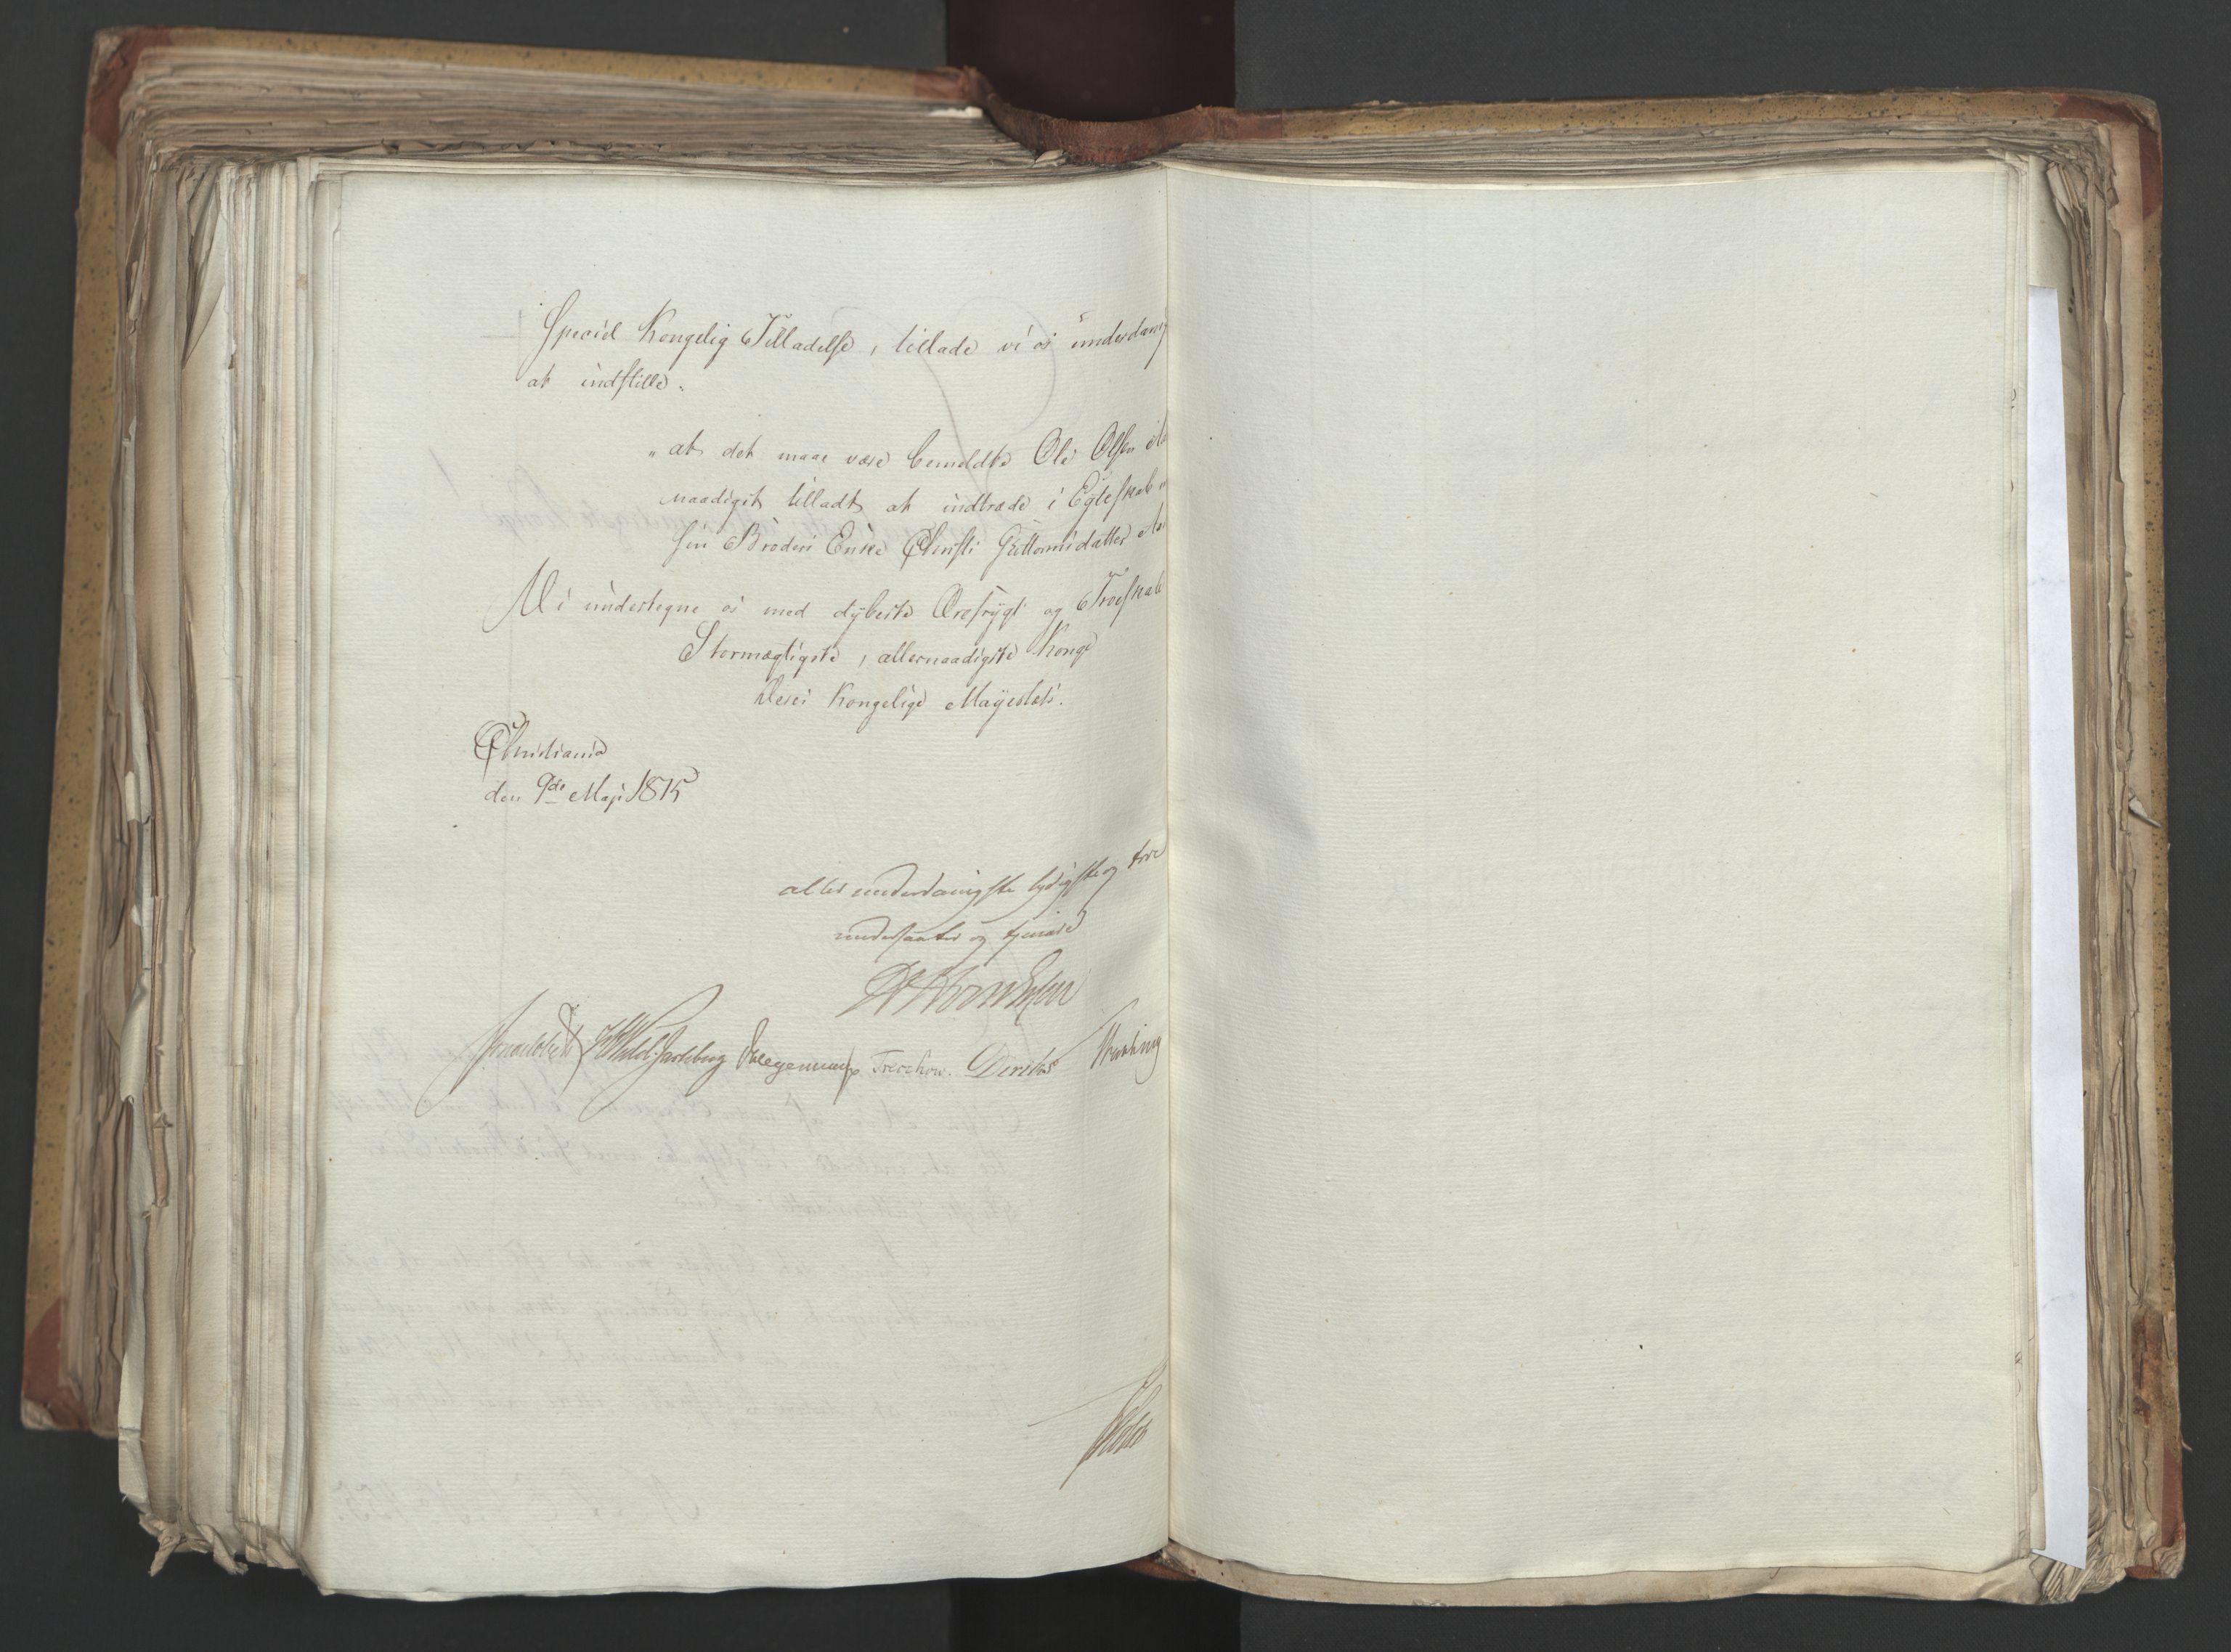 Speciel Kongelig Tilladelse, tillade vi os underdanig
at indstille:
"at det maae være bemeldte Ole Olsen
naadigst tilladt at indtræde i Egteskab
sin Broders Enke Christi Guttormsdatter
Vi undertegne os med dybeste Ærefrygt og Troeskab
Stormægtigste, allernaadigste Konge
Deres Kongelige Majestæts.
Christiania
den 9de Maji 1815
allerunderdanigste lydigste og troe
undersaatter og tjenere
Sommerhielm Wedel-Jarlsberg Treschow. Diriks
Holst